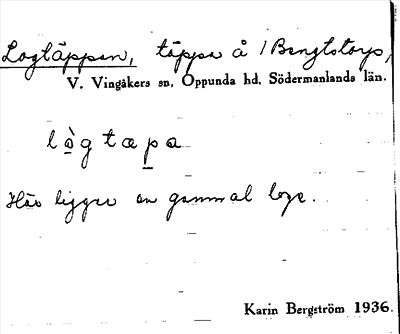 Logtäppan, täppa å 1 Bengtstorp,
V. Vingåkers sn, Oppunda hd, Södermanlands län.
lògtæpa
Här ligger en gammal loge.
Karin Bergström 1936.